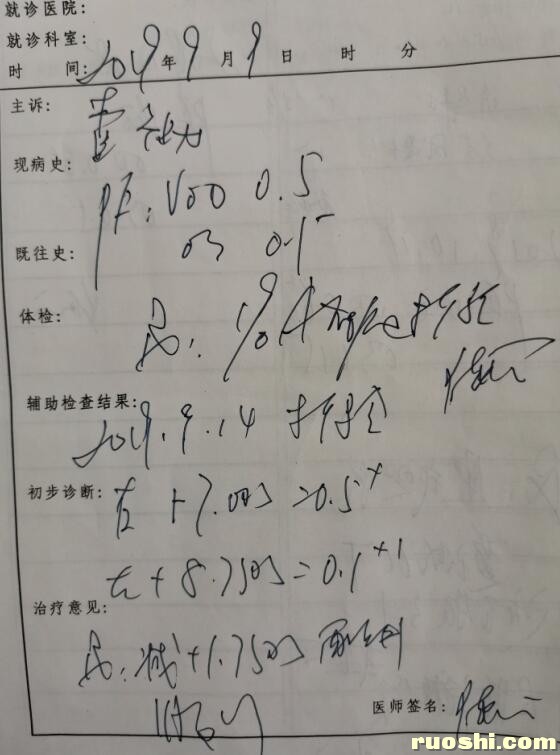 就诊医院:
就诊科室:
时 间: 2019年9月9日 时 分
主诉: 查视力
现病史:
PE: VOD 0.5
OS 0.1
既往史:
体检:
1% A
辅助检查结果:
2019.9.14 扩验
初步诊断:
右 +7.00DS=0.5
左 +8.75DS=0.1+1
治疗意见:
减+1.75DS 配
医师签名:
ruoshi.com